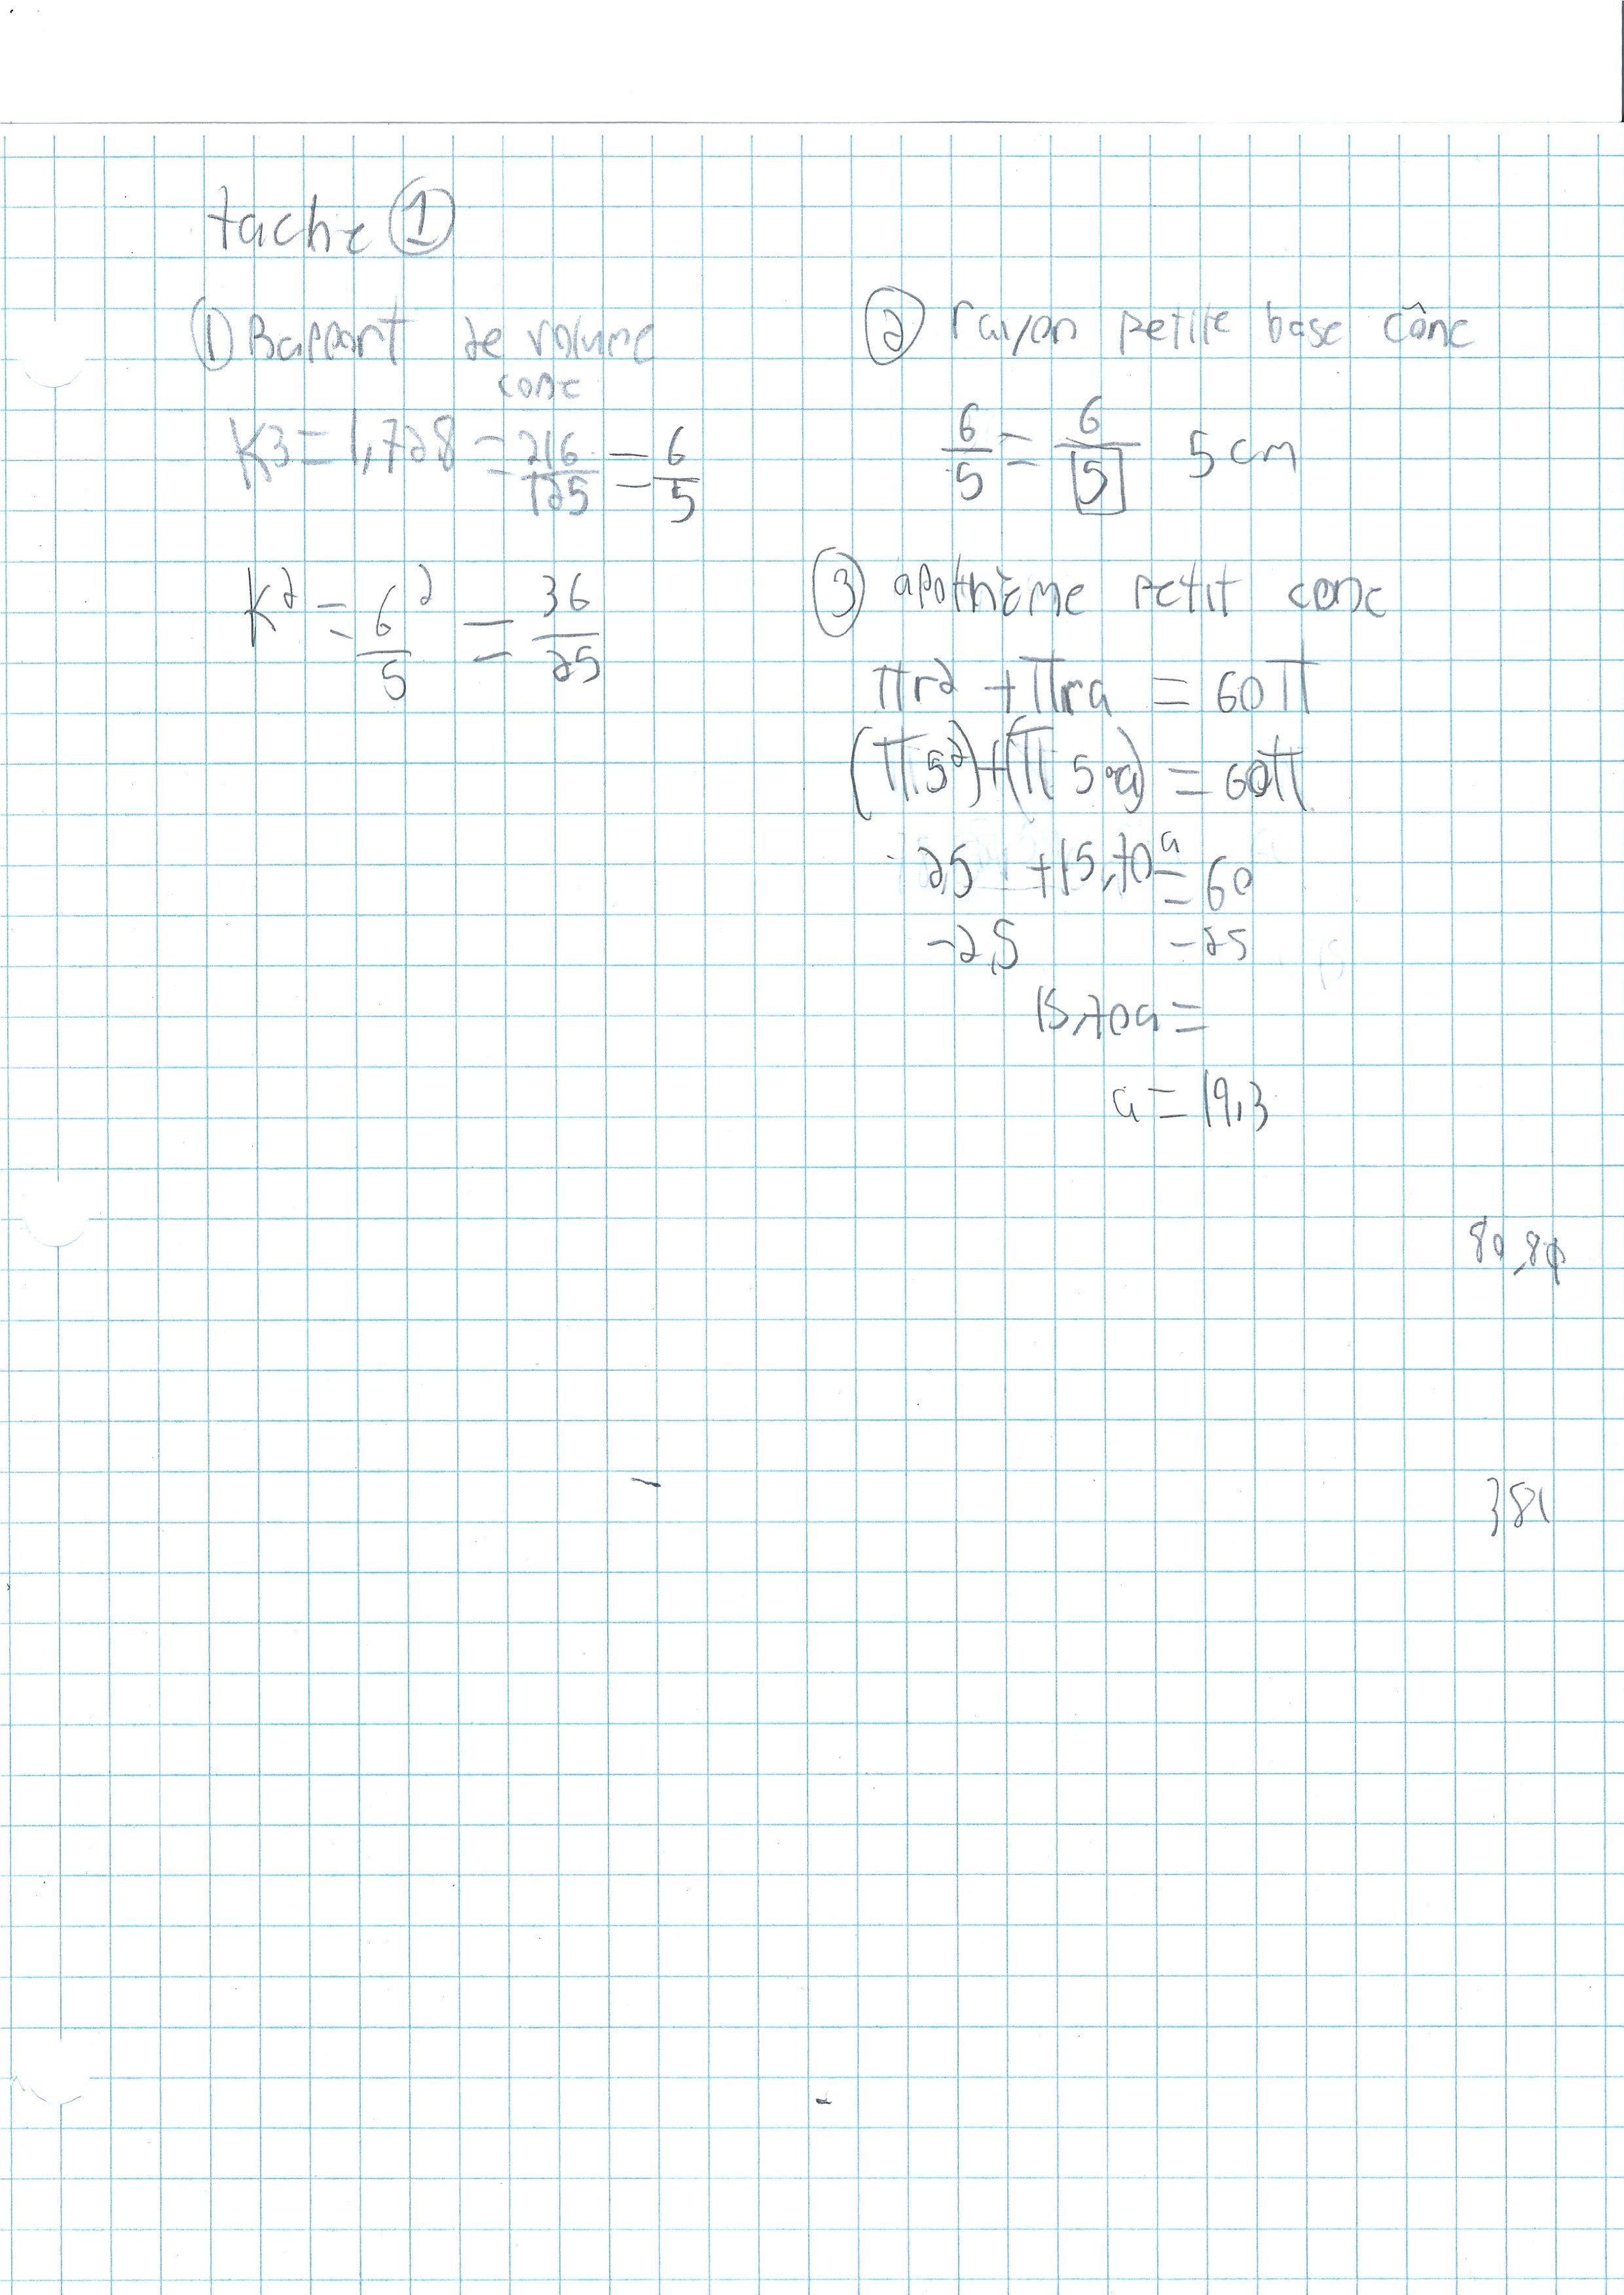 tache ①
① Rapport de volume
cone
K3 = 1,728 = 216/125 = 6/5
K² = 6²/5 = 36/25
② rayon petite base cône
6/5 = 6/5 5 cm
③ apothème petit cone
πr² + πra = 60π
(π5²)+(π5·a) = 60π
25 +15,70a = 60
-25 -25
15,70a =
a = 19,3
381